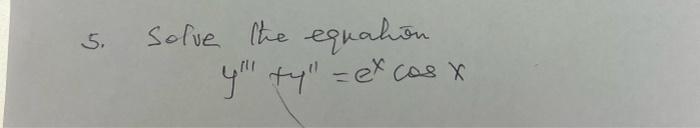 5. Solve the equation
y''' + y'' = e^x cos x